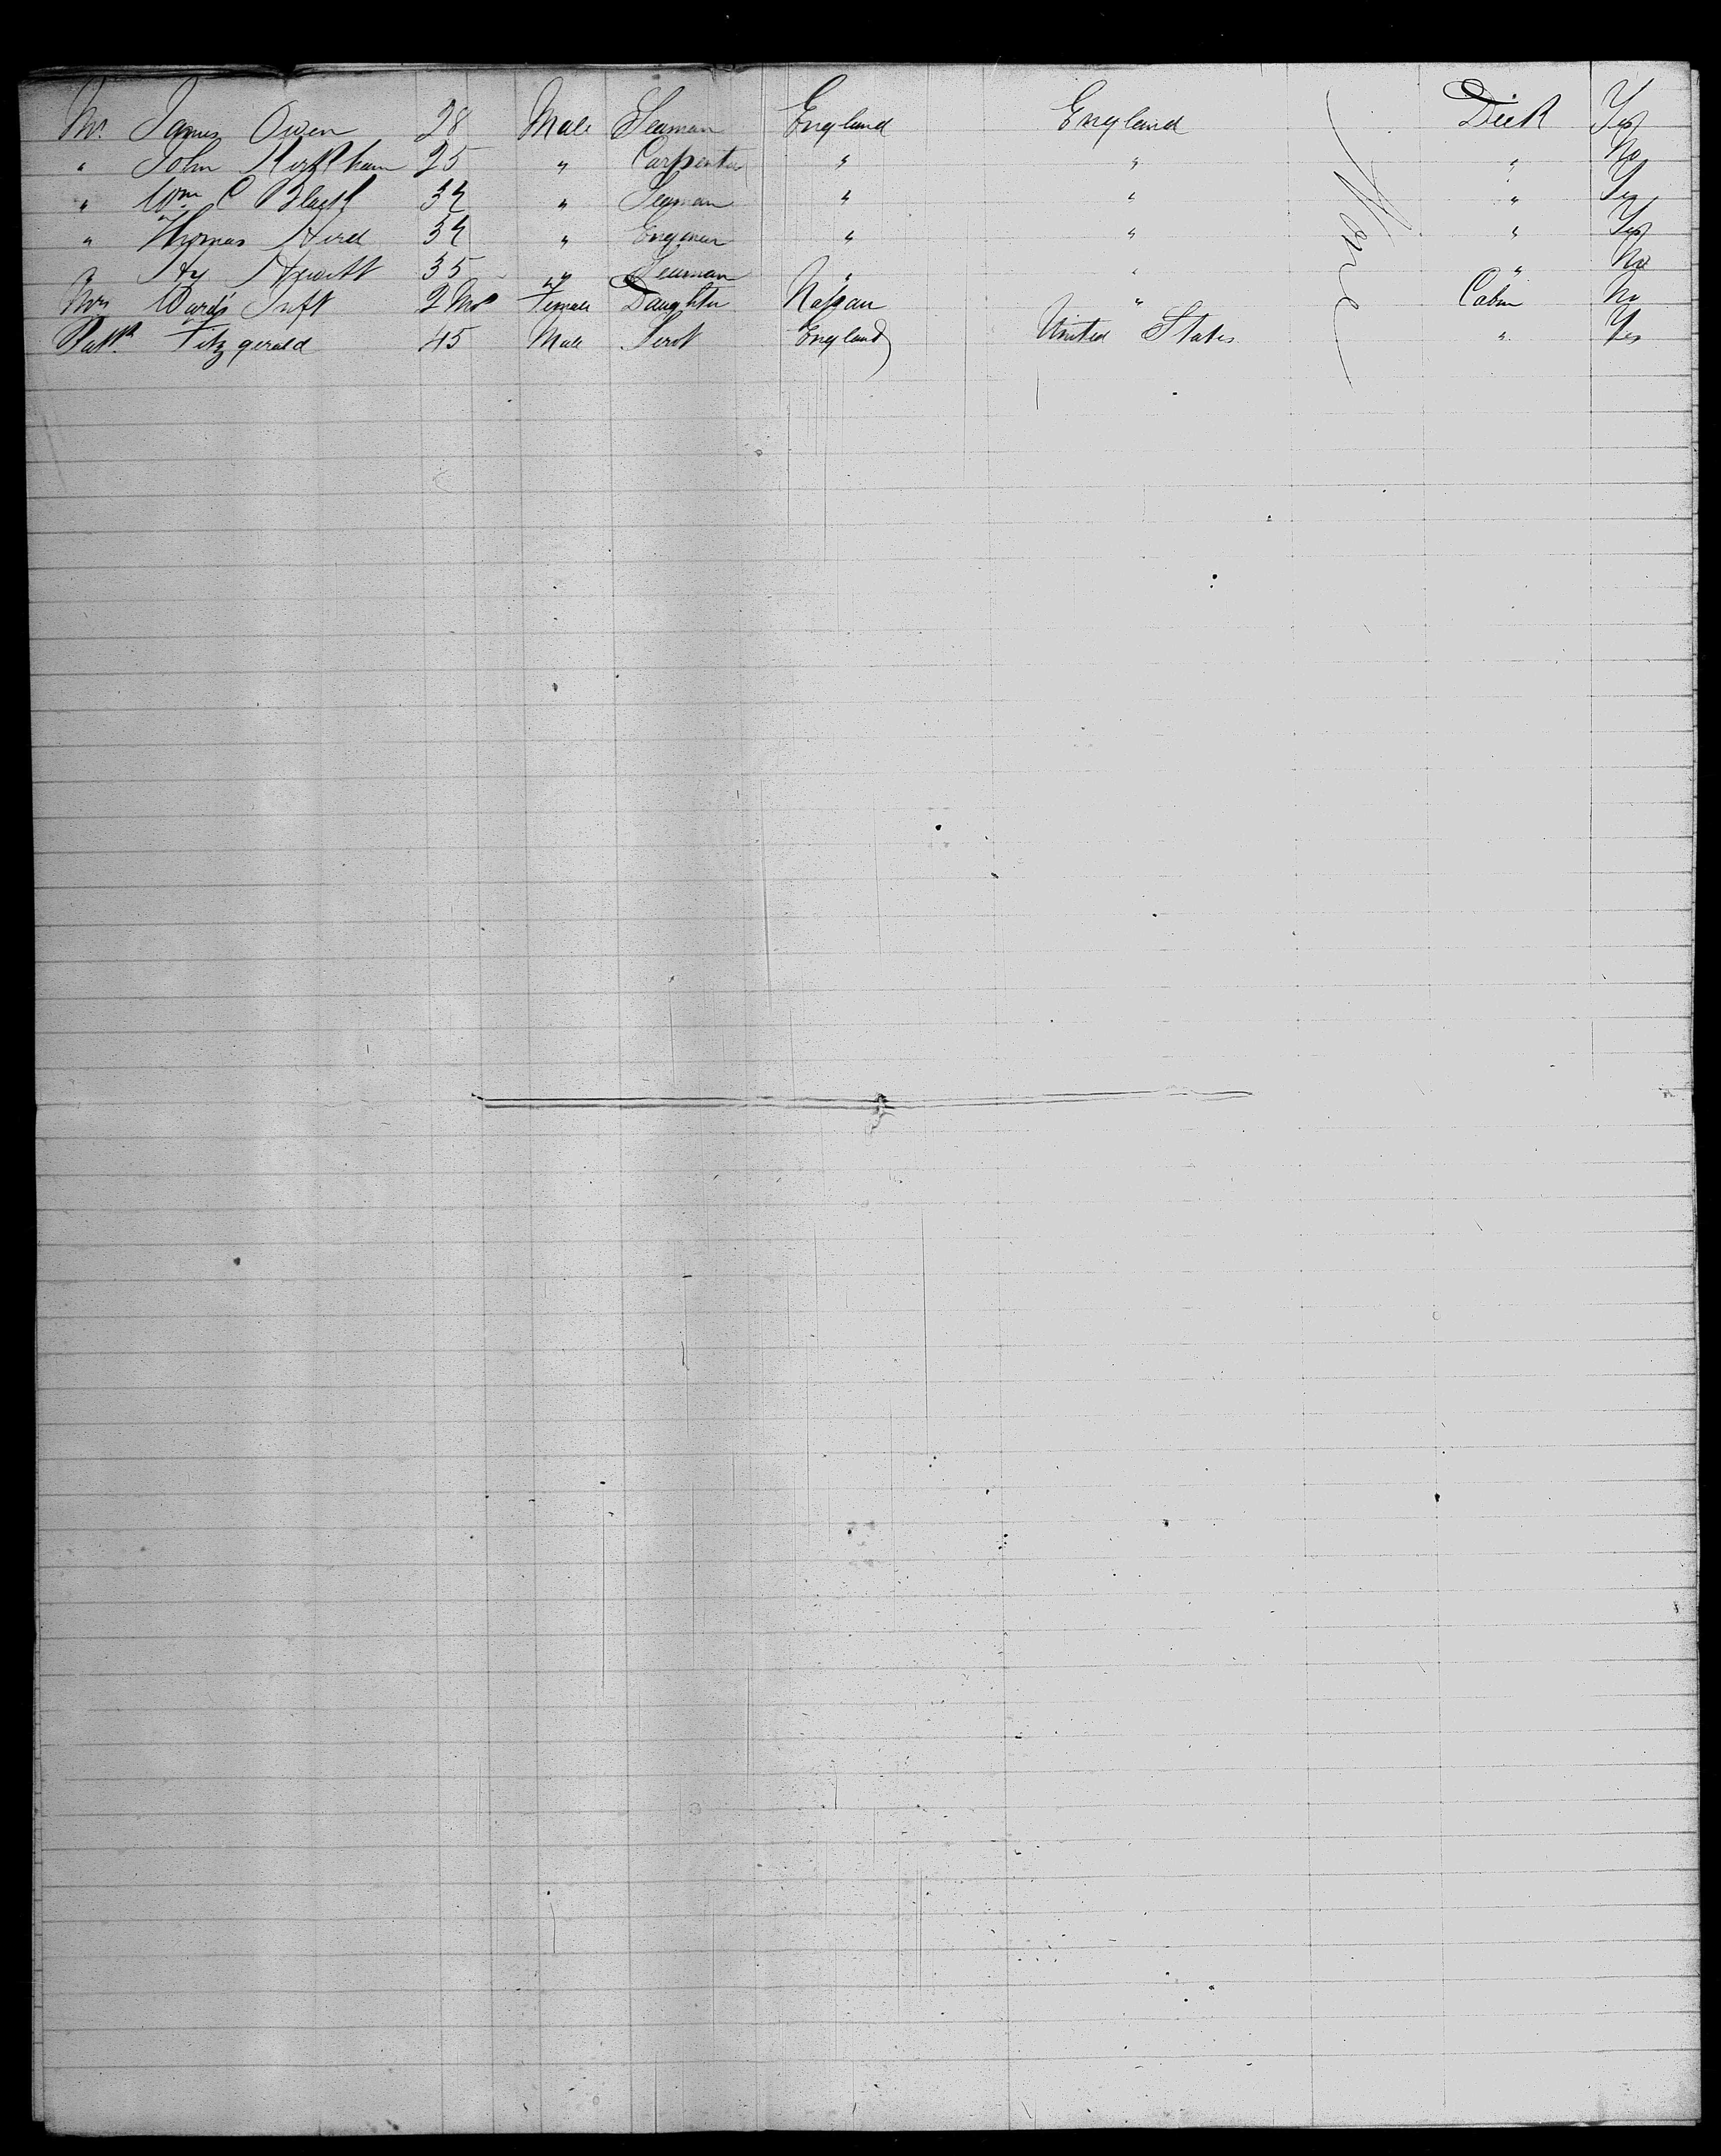 Mr. James Owen 28 Male Seaman England England Deck Yes
" John Kirkham 25 " Carpenter " " " No
" Wm C Black 32 " Seaman " " " Yes
" Thomas Hird 32 " Engineer " " " Yes
" Hy Hewitt 35 " Seaman " " " No
Mrs Ward's Inft 2 Mos Female Daughter Nassau " Cabin No
Patk. Fitzgerald 45 Male Servt England United States " Yes
None